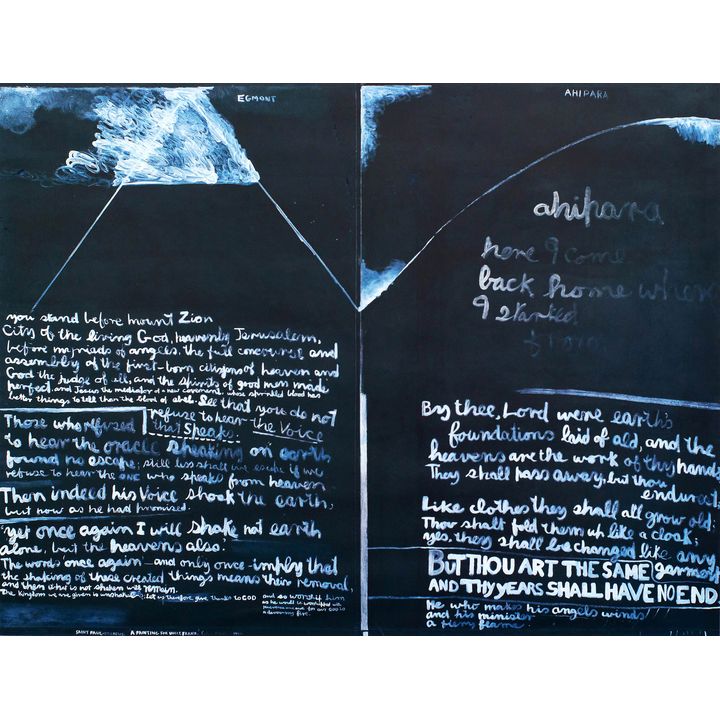 EGMONT
you stand before mount Zion
City of the living God, heavenly Jerusalem,
before myriads of angels, the full concourse and
assembly of the first-born citizens of heaven and
God the judge of all, and the spirits of good men made
perfect, and Jesus the mediator of a new covenant, whose sprinkled blood has
better things to tell than the blood of abel. See that you do not
refuse to hear the Voice
that Speaks.
Those who refused
to hear the oracle speaking on earth
found no escape; still less shall we escape if we
refuse to hear the ONE who speaks from heaven
Then indeed his Voice shook the earth,
but now as he had promised.
"yet once again I will shake not earth
alone, but the heavens also.
The words once again - and only once - imply that
the shaking of these created things means their removal,
and then what is not shaken will remain.
The kingdom we are given is unshakable; let us therefore give thanks to GOD
and so worship him
as he would be worshipped with
and for our GOD is
a devouring fire.
SAINT PAUL A PAINTING FOR
AHIPARA
ahipara
here I come
back home where
I started
from
By thee, Lord were earth's
foundations laid of old, and the
heavens are the work of thy hands
They shall pass away, but thou
endurest
Like clothes they shall all grow old;
Thou shalt fold them up like a cloak;
yes, they shall be changed like any
garment
BUT THOU ART THE SAME
AND THY YEARS SHALL HAVE NO END.
He who makes his angels winds
and his minister
a fiery flame